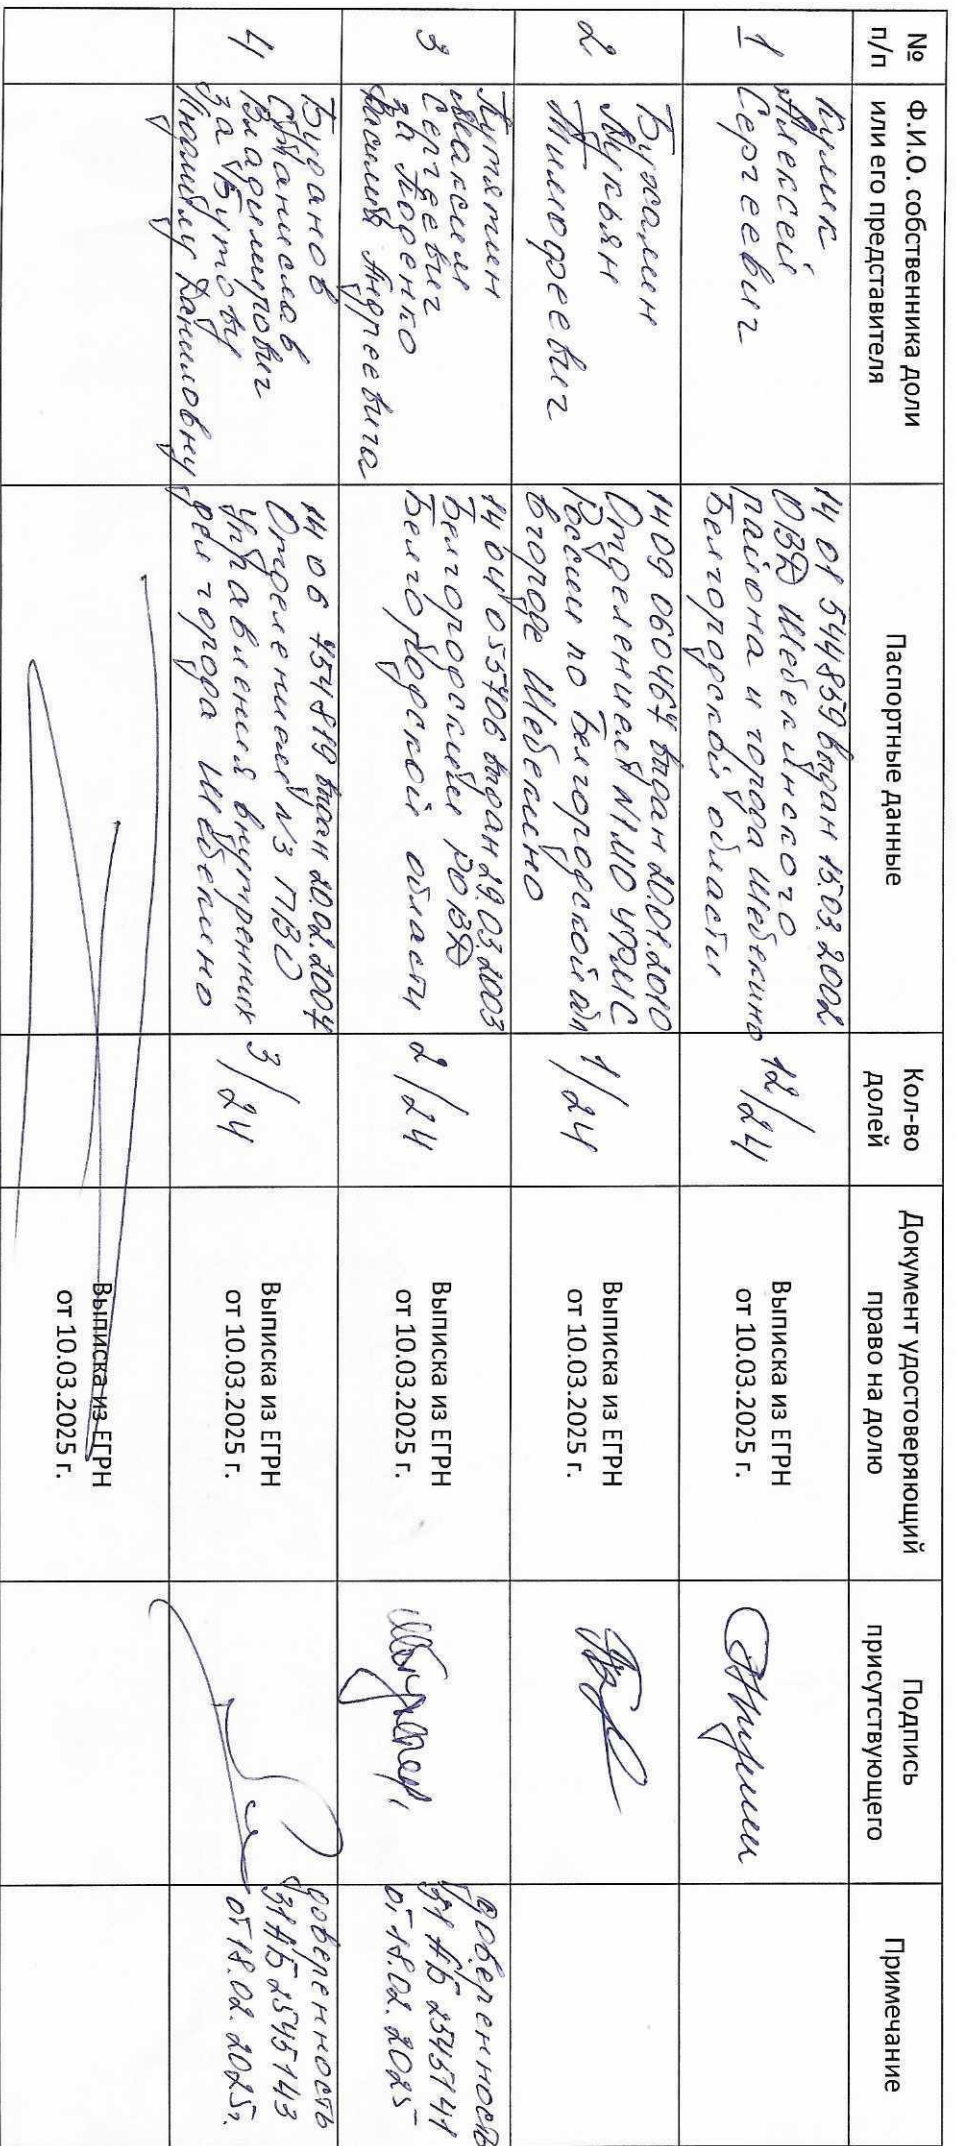 № п/п
Ф.И.О. собственника доли
или его представителя
Паспортные данные
Кол-во
долей
Документ удостоверяющий
право на долю
Подпись
присутствующего
Примечание
1
Кулик
Алексей
Сергеевич
14 01 544859 выдан 15.03.2002
ОВД Шебекинского
района и города Шебекино
Белгородской области
12/24
Выписка из ЕГРН
от 10.03.2025 г.
2
Бужалин
Лукьян
Тимофеевич
14 09 060467 выдан 20.01.2010
Отделением №1 МО УФМС
России по Белгородской обл
в городе Шебекино
1/24
Выписка из ЕГРН
от 10.03.2025 г.
3
Путятин
Максим
Сергеевич
за
Василия Андреевича
14 04 055706 выдан 29.03.2003
Белгородским РОВД
Белгородской области
2/24
Выписка из ЕГРН
от 10.03.2025 г.
доверенность
31 АБ 2545141
от 18.02.2025
4
Буданов
Станислав
Владимирович
за Бутову
Людмилу Даниловну
14 06 754819 выдан 20.02.2007
Отделением №3 ПВО
Управления внутренних
дел города Шебекино
3/24
Выписка из ЕГРН
от 10.03.2025 г.
доверенность
31 АБ 2545143
от 18.02.2025г.
Выписка из ЕГРН
от 10.03.2025 г.